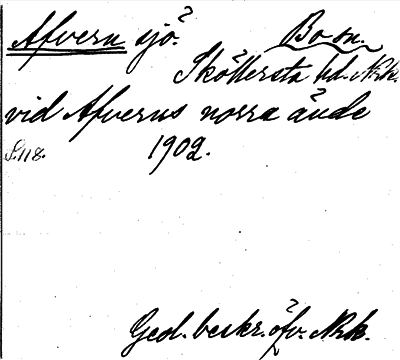 Afvern sjö. Bo sn.
Sköllersta hd. Nrk.
vid Afverns norra ände
S. 118. 1902.
Geol. beskr. öfv. Nrk.